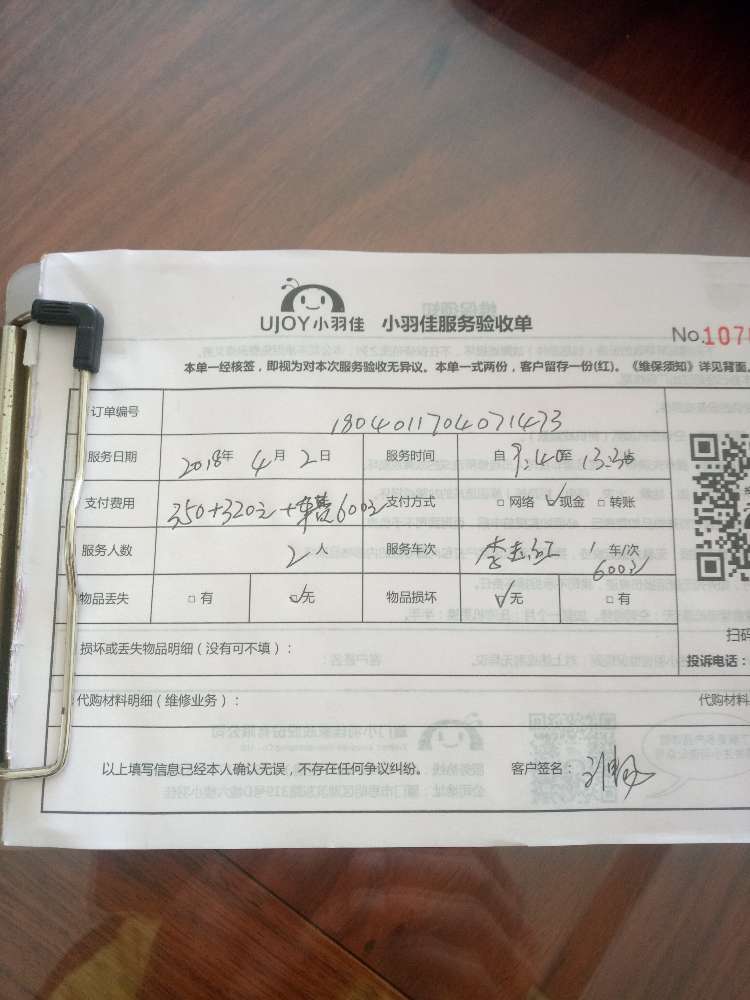 UJOY小羽佳 小羽佳服务验收单
No.107
本单一经核签，即视为对本次服务验收无异议。本单一式两份，客户留存一份(红)。《维保须知》详见背面。
订单编号 1804011704071473
服务日期 2018年 4月 2日 服务时间 自 9:40至 13:30
支付费用 350+320元+车费600元 支付方式 □ 网络 ☑现金 □ 转账
服务人数 2人 服务车次 李志红 1车/次
600元
物品丢失 □ 有 ☑无 物品损坏 ☑无 □ 有
损坏或丢失物品明细（没有可不填）：
扫码
投诉电话：
代购材料明细（维修业务）： 代购材料
以上填写信息已经本人确认无误，不存在任何争议纠纷。 客户签名：